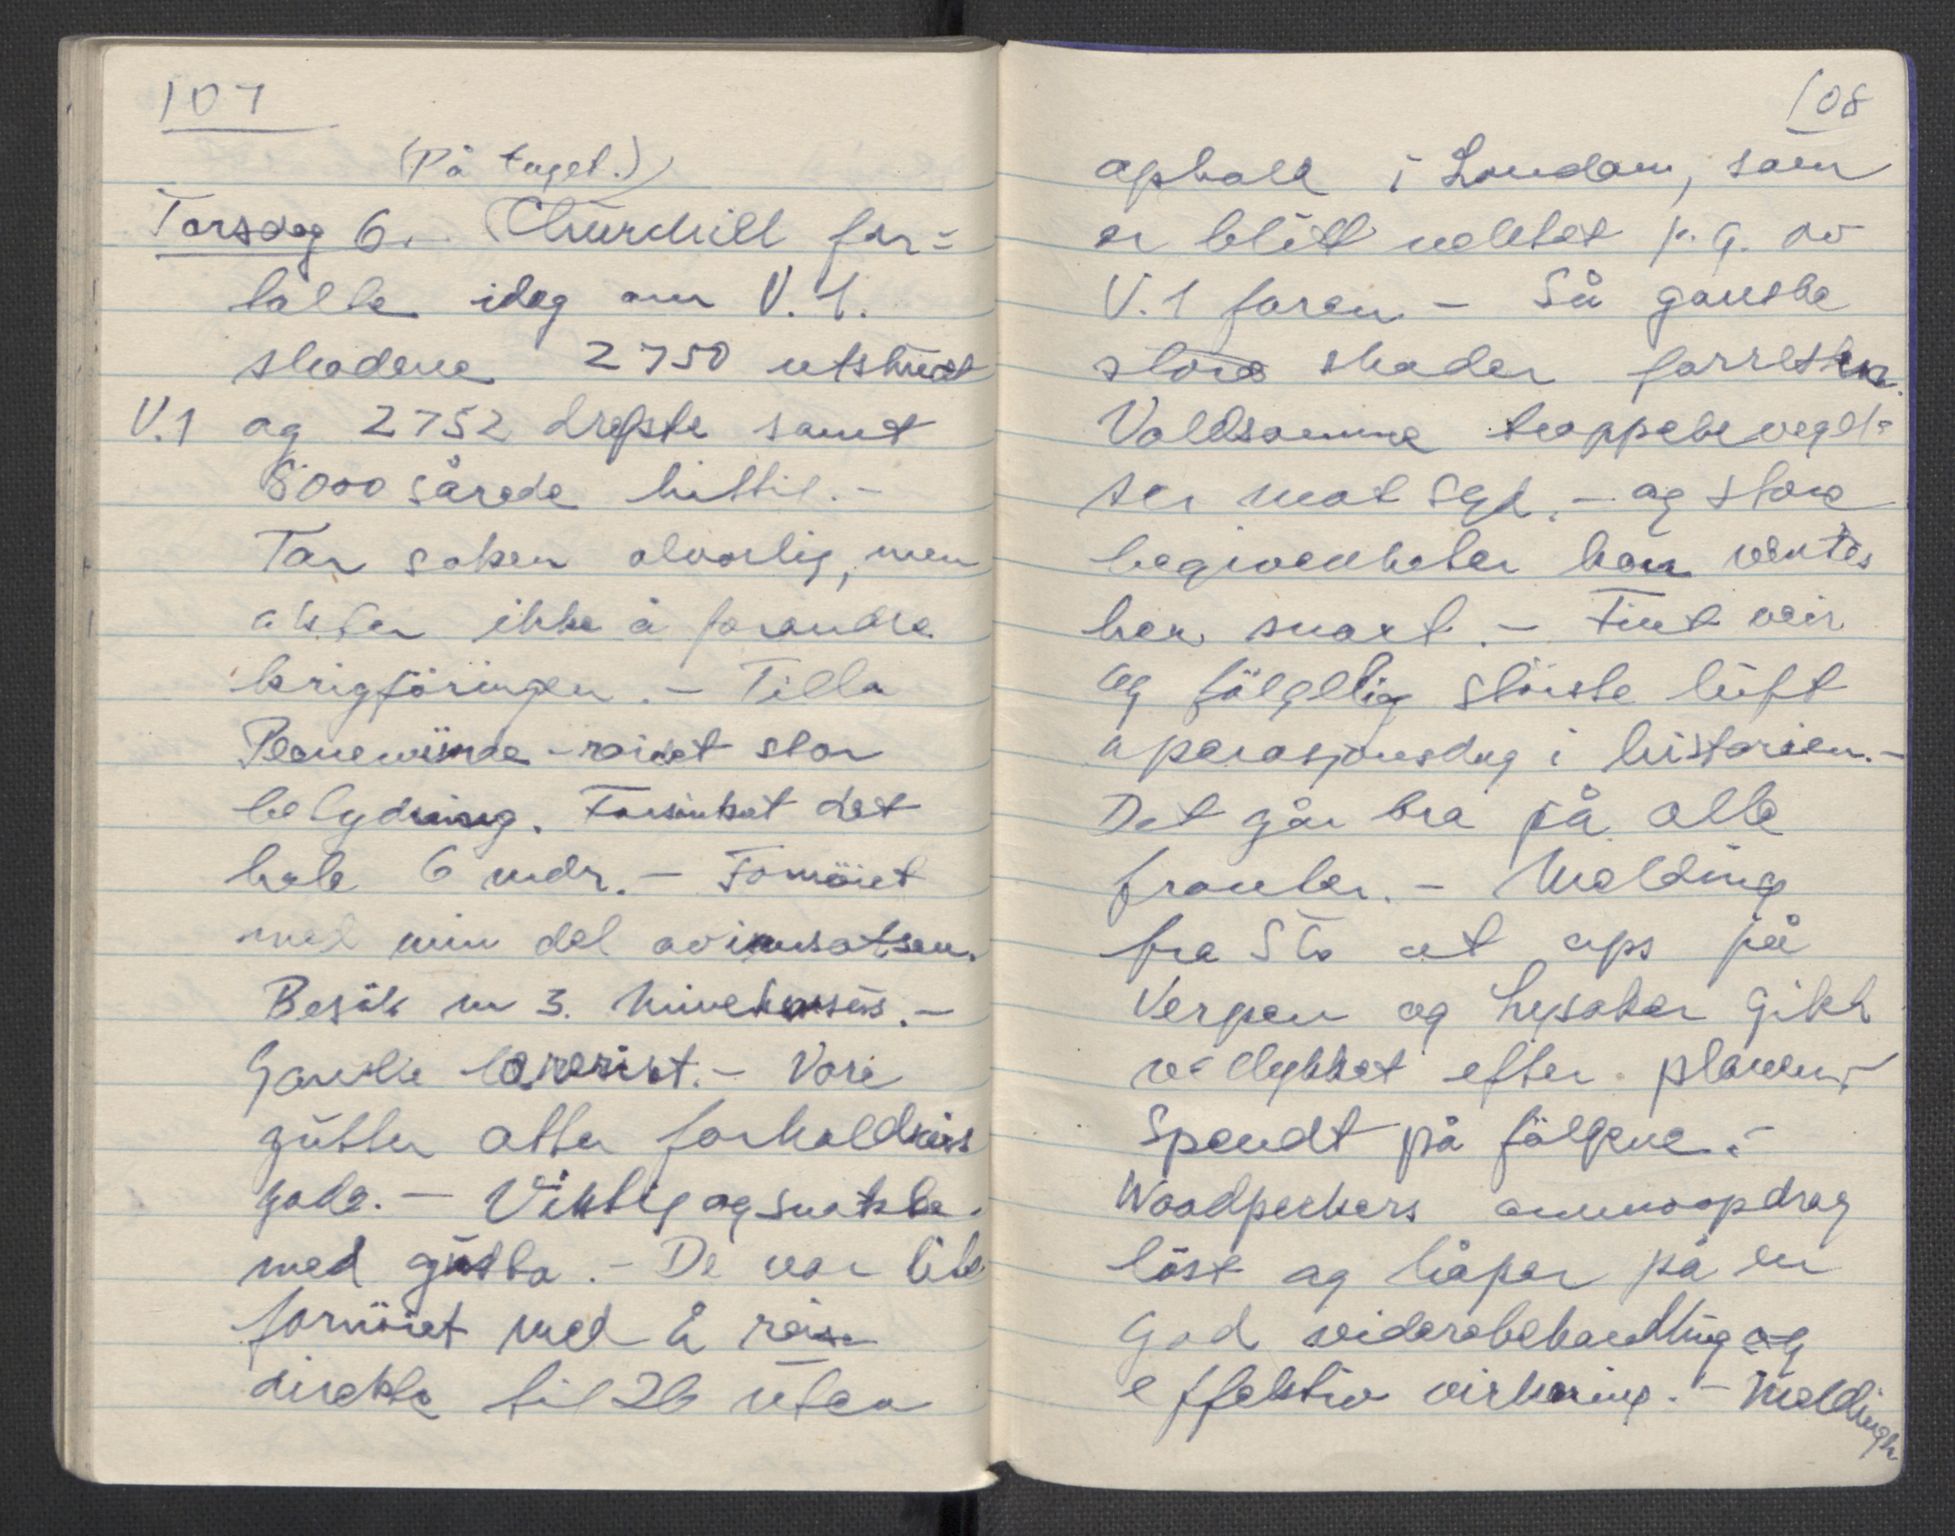 107
(På toget.)
Torsdag 6. Churchill for=
talte idag om V.1.
skadene 2750 utskudt
V.1 og 2752 drepte samt
8000 sårede hittil.-
Tar saken alvorlig, men
akter ikke å forandre
krigføringen. - Tilla
Peenemünde-raidet stor
betydning. Forsinket det
hele 6 mdr. - Fornöiet
med min del av innsatsen.
Besök
Ganske - Våre
gutter atter forholdsvis
gode. - Viktig og snakke
med gutta. - De var lite
fornöiet med å reise
direkte til 26 uten
108
ophold i London, som
er blitt nektet p.g. av
V.1 faren. - Så ganske
store skader forresten.
Voldsomme troppebevegel=
ser mot Syd. - og store
begivenheter kan ventes
her snart. - Fint veir
og fölgelig störste luft
operasjonsdag i historien. -
Det går bra på alle
fronter. - Melding
fra Sto at ops på
Verpen og Lysaker gikk
vellykket efter planen. -
Spendt på fölgene. -
Woodpeckers ammoopdrag
löst og håper på en
god viderebehandling og
effektiv virkning. -